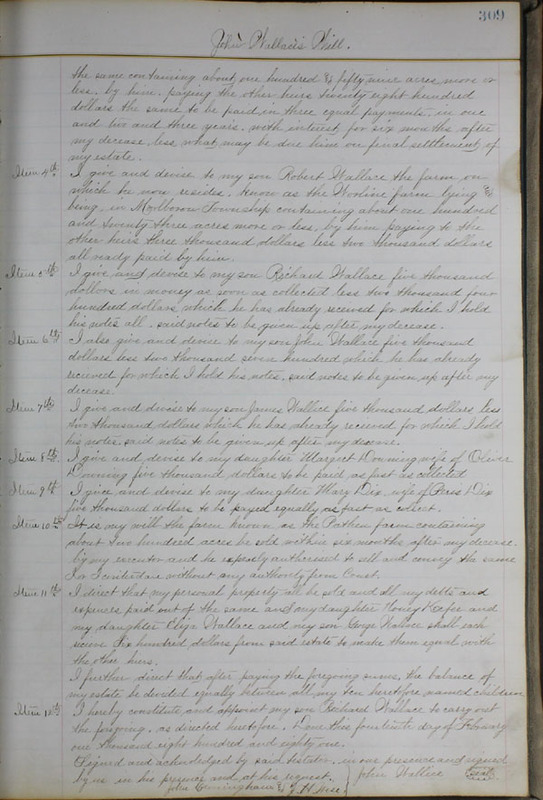 309
John Wallace's Will.
the same containing about one hundred & fifty nine acres more or
less, by him paying the other heirs twenty eight hundred
dollars the same to be paid in three equal payments, in one
and two and three years, with interest for six months after
my decease, less what may be due him on final settlement of
my estate.
Item 4th I give and devise to my son Robert Wallace the farm on
which he now resides, know as the farm lying &
being in Township containing about one hundred
and twenty three acres more or less, by him paying to the
other heirs three thousand dollars less two thousand dollars
all ready paid by him.
Item 5th I give and devise to my son Richard Wallace five thousand
dollars in money as soon as collected less two thousand four
hundred dollars which he has already received for which I hold
his notes all said notes to be given up after my decease.
Item 6th I also give and devise to my son John Wallace five thousand
dollars less two thousand seven hundred which he has already
recieved for which I hold his notes, said notes to be given up after my
decease.
Item 7th I give and devise to my son James Wallace five thousand dollars less
two thousand dollars which he has already recieved for which I hold
his notes said notes to be given up after my decease.
Item 8th I give and devise to my daughter Margret Downing wife of Oliver
Downing five thousand dollars to be paid as fast as collected
Item 9th I give and devise to my daughter Mary Dix, wife of Paris Dix
five thousand dollars to be payed equally as fast as collect.
Item 10th It is my will the farm known as the farm containing
about two hundred acres be sold within six months after my decease
by my executor and he expressly authorised to sell and convey the same
without any authority from Court.
Item 11th I direct that my personal property all be sold and all my debts and
expences paid out of the same and my daughter and
my daughter Eliza Wallace and my son George Wallace shall each
recieve Six hundred dollars from said estate to make them equal with
the other heirs.
I further direct that after paying the foregoing sums, the balance of
my estate be devided equally between all my ten heretofore named children
Item 12th I hereby constitute and appoint my son Richard Wallace to carry out
the forgoing, as directed heretofore. Done this day of February
one thousand eight hundred and eighty one.
Signed and acknowledged by said testator, in our presence and signed
by us in his presence and at his request. John Wallace Seal
John Cunningham & J. H. Wise